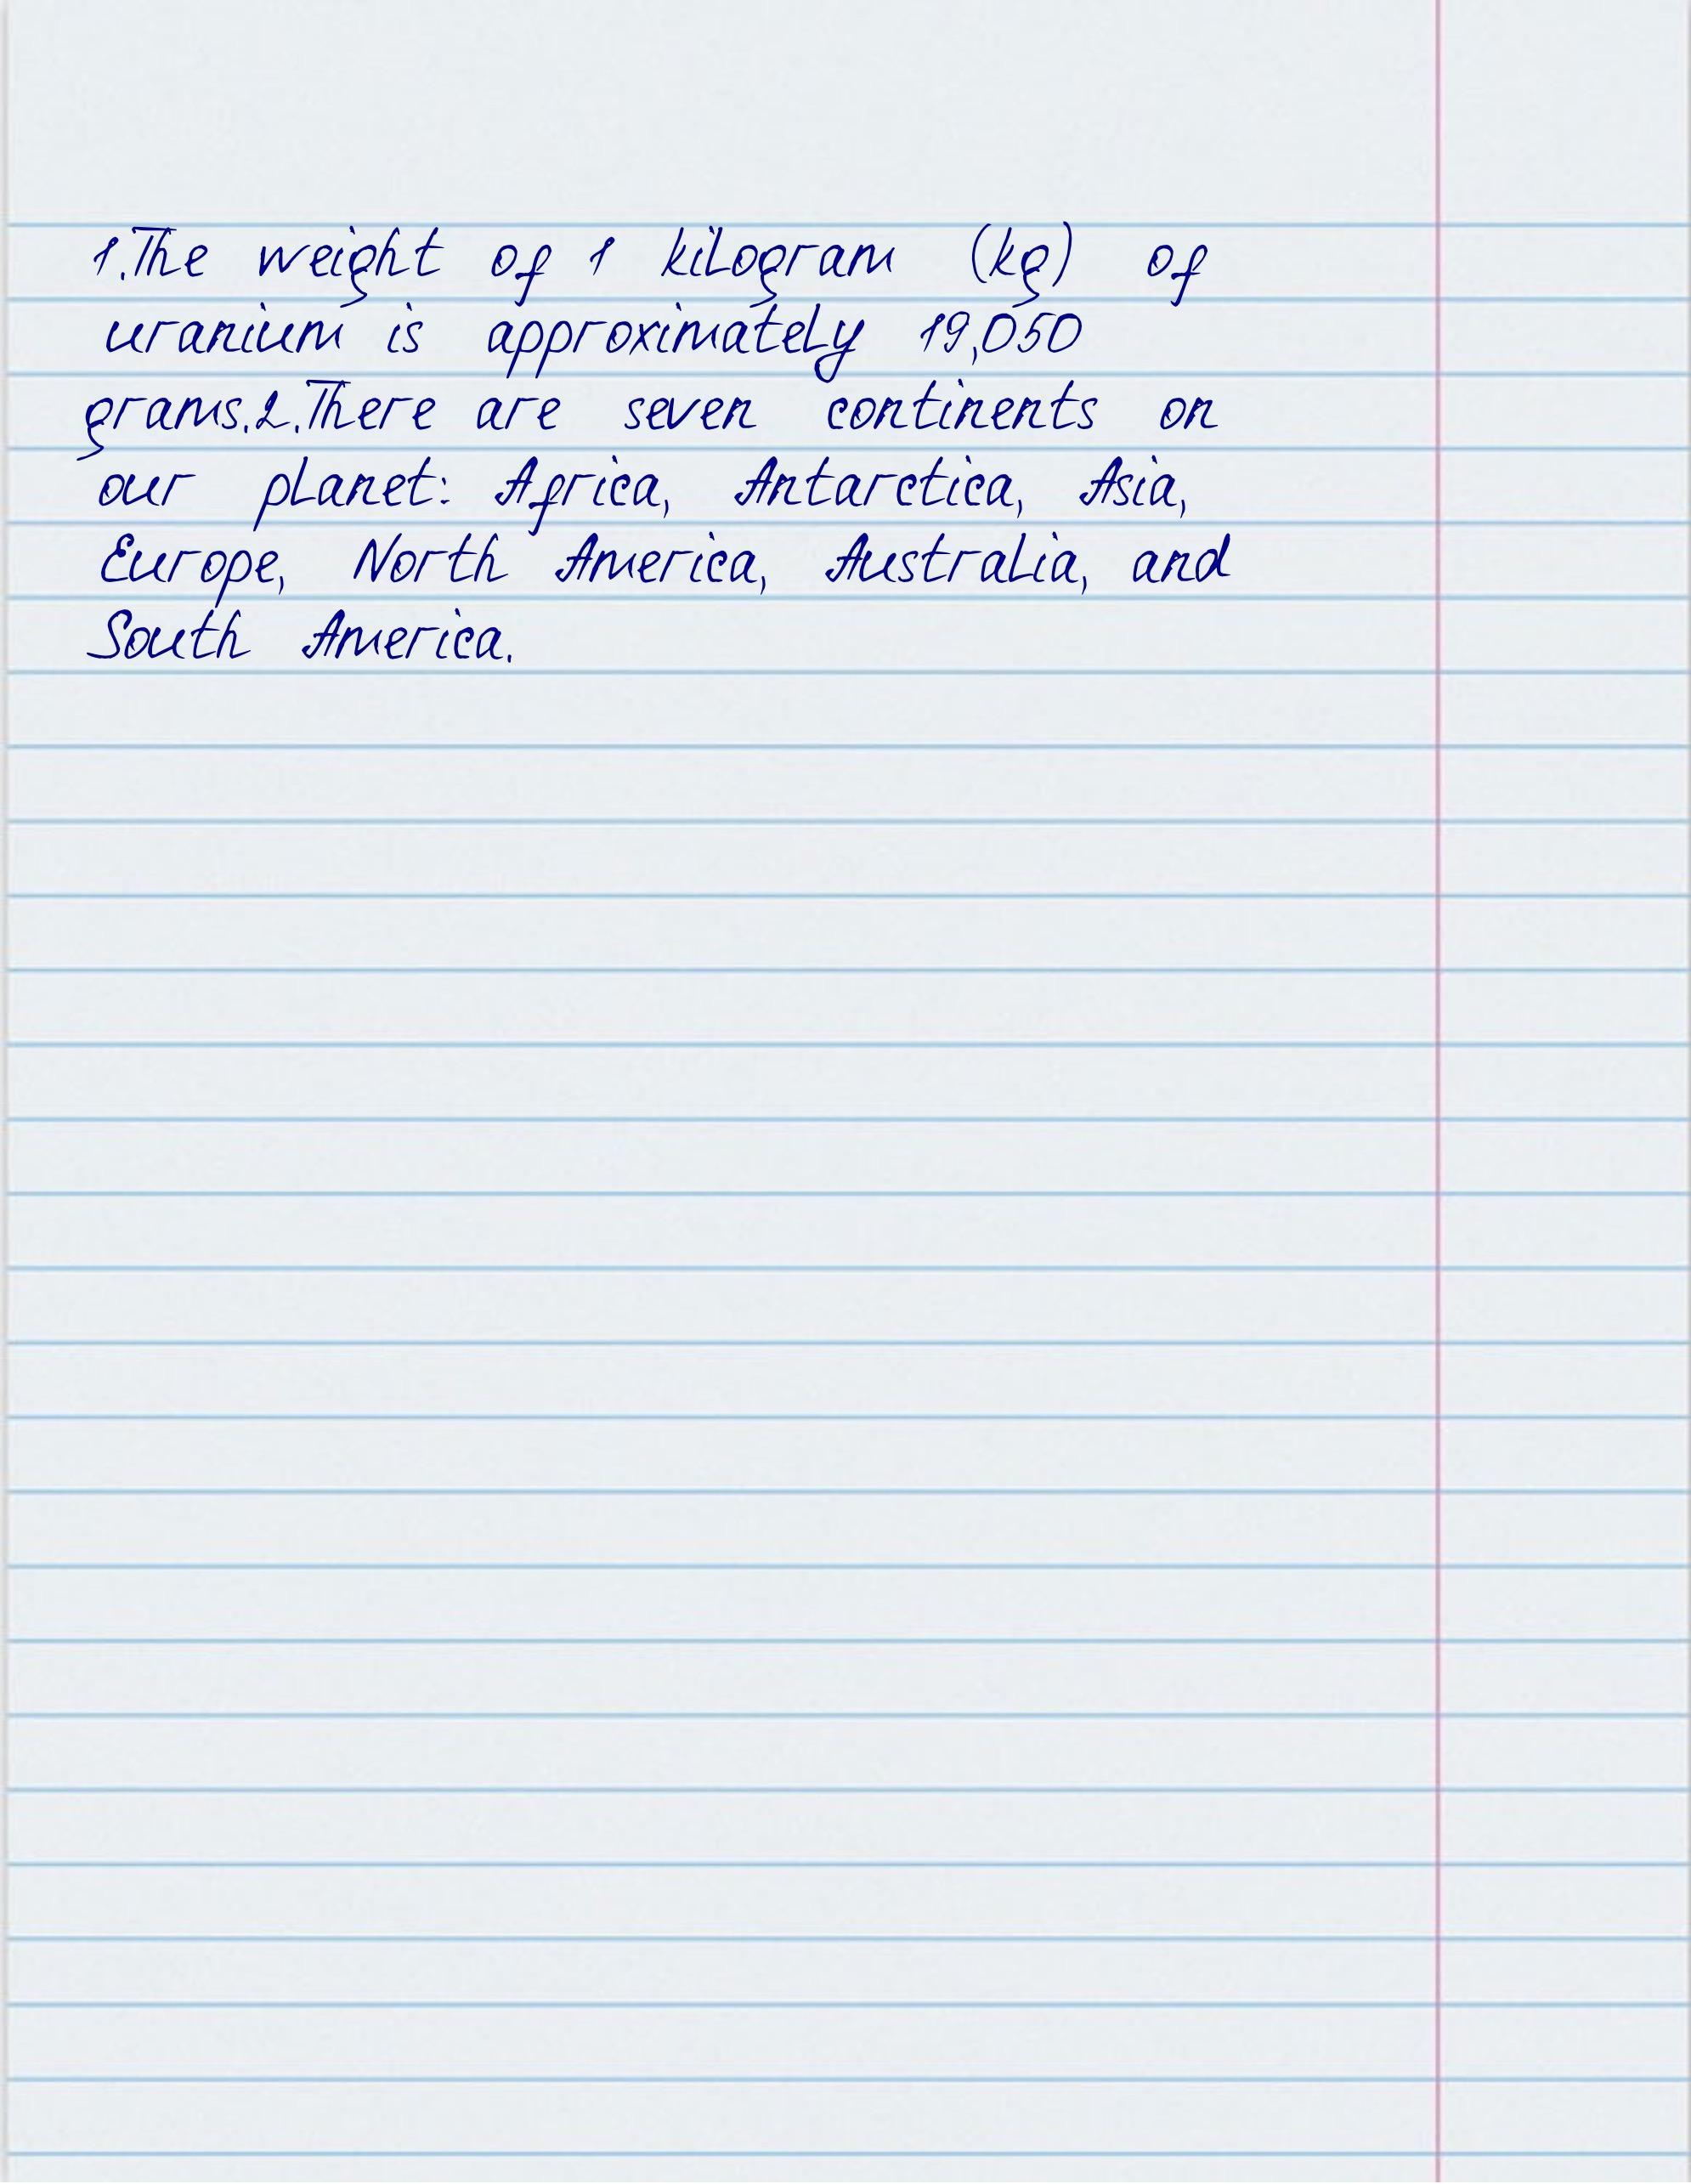 1.The weight of 1 kilogram (kg) of
uranium is approximately 19,050
grams.2.There are seven continents on
our planet: Africa, Antarctica, Asia,
Europe, North America, Australia, and
South America.